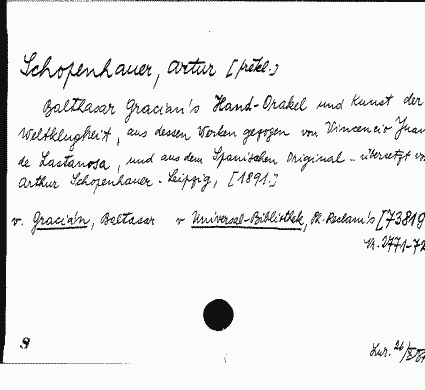 Schopenhauer, Artur [překl.]
Balthasar Gracian's Hand-Orakel und Kunst der
Weltklugheit, aus dessen Werken gezogen von Vincencio Juan
de Lastanosa, und aus dem Spanischen Original - übersetzt von
Arthur Schopenhauer - Leipzig, [1891.]
v. Gracián, Baltasar v Universal-Bibliothek, Ph. Reclam's [73819
N. 2771-72
S